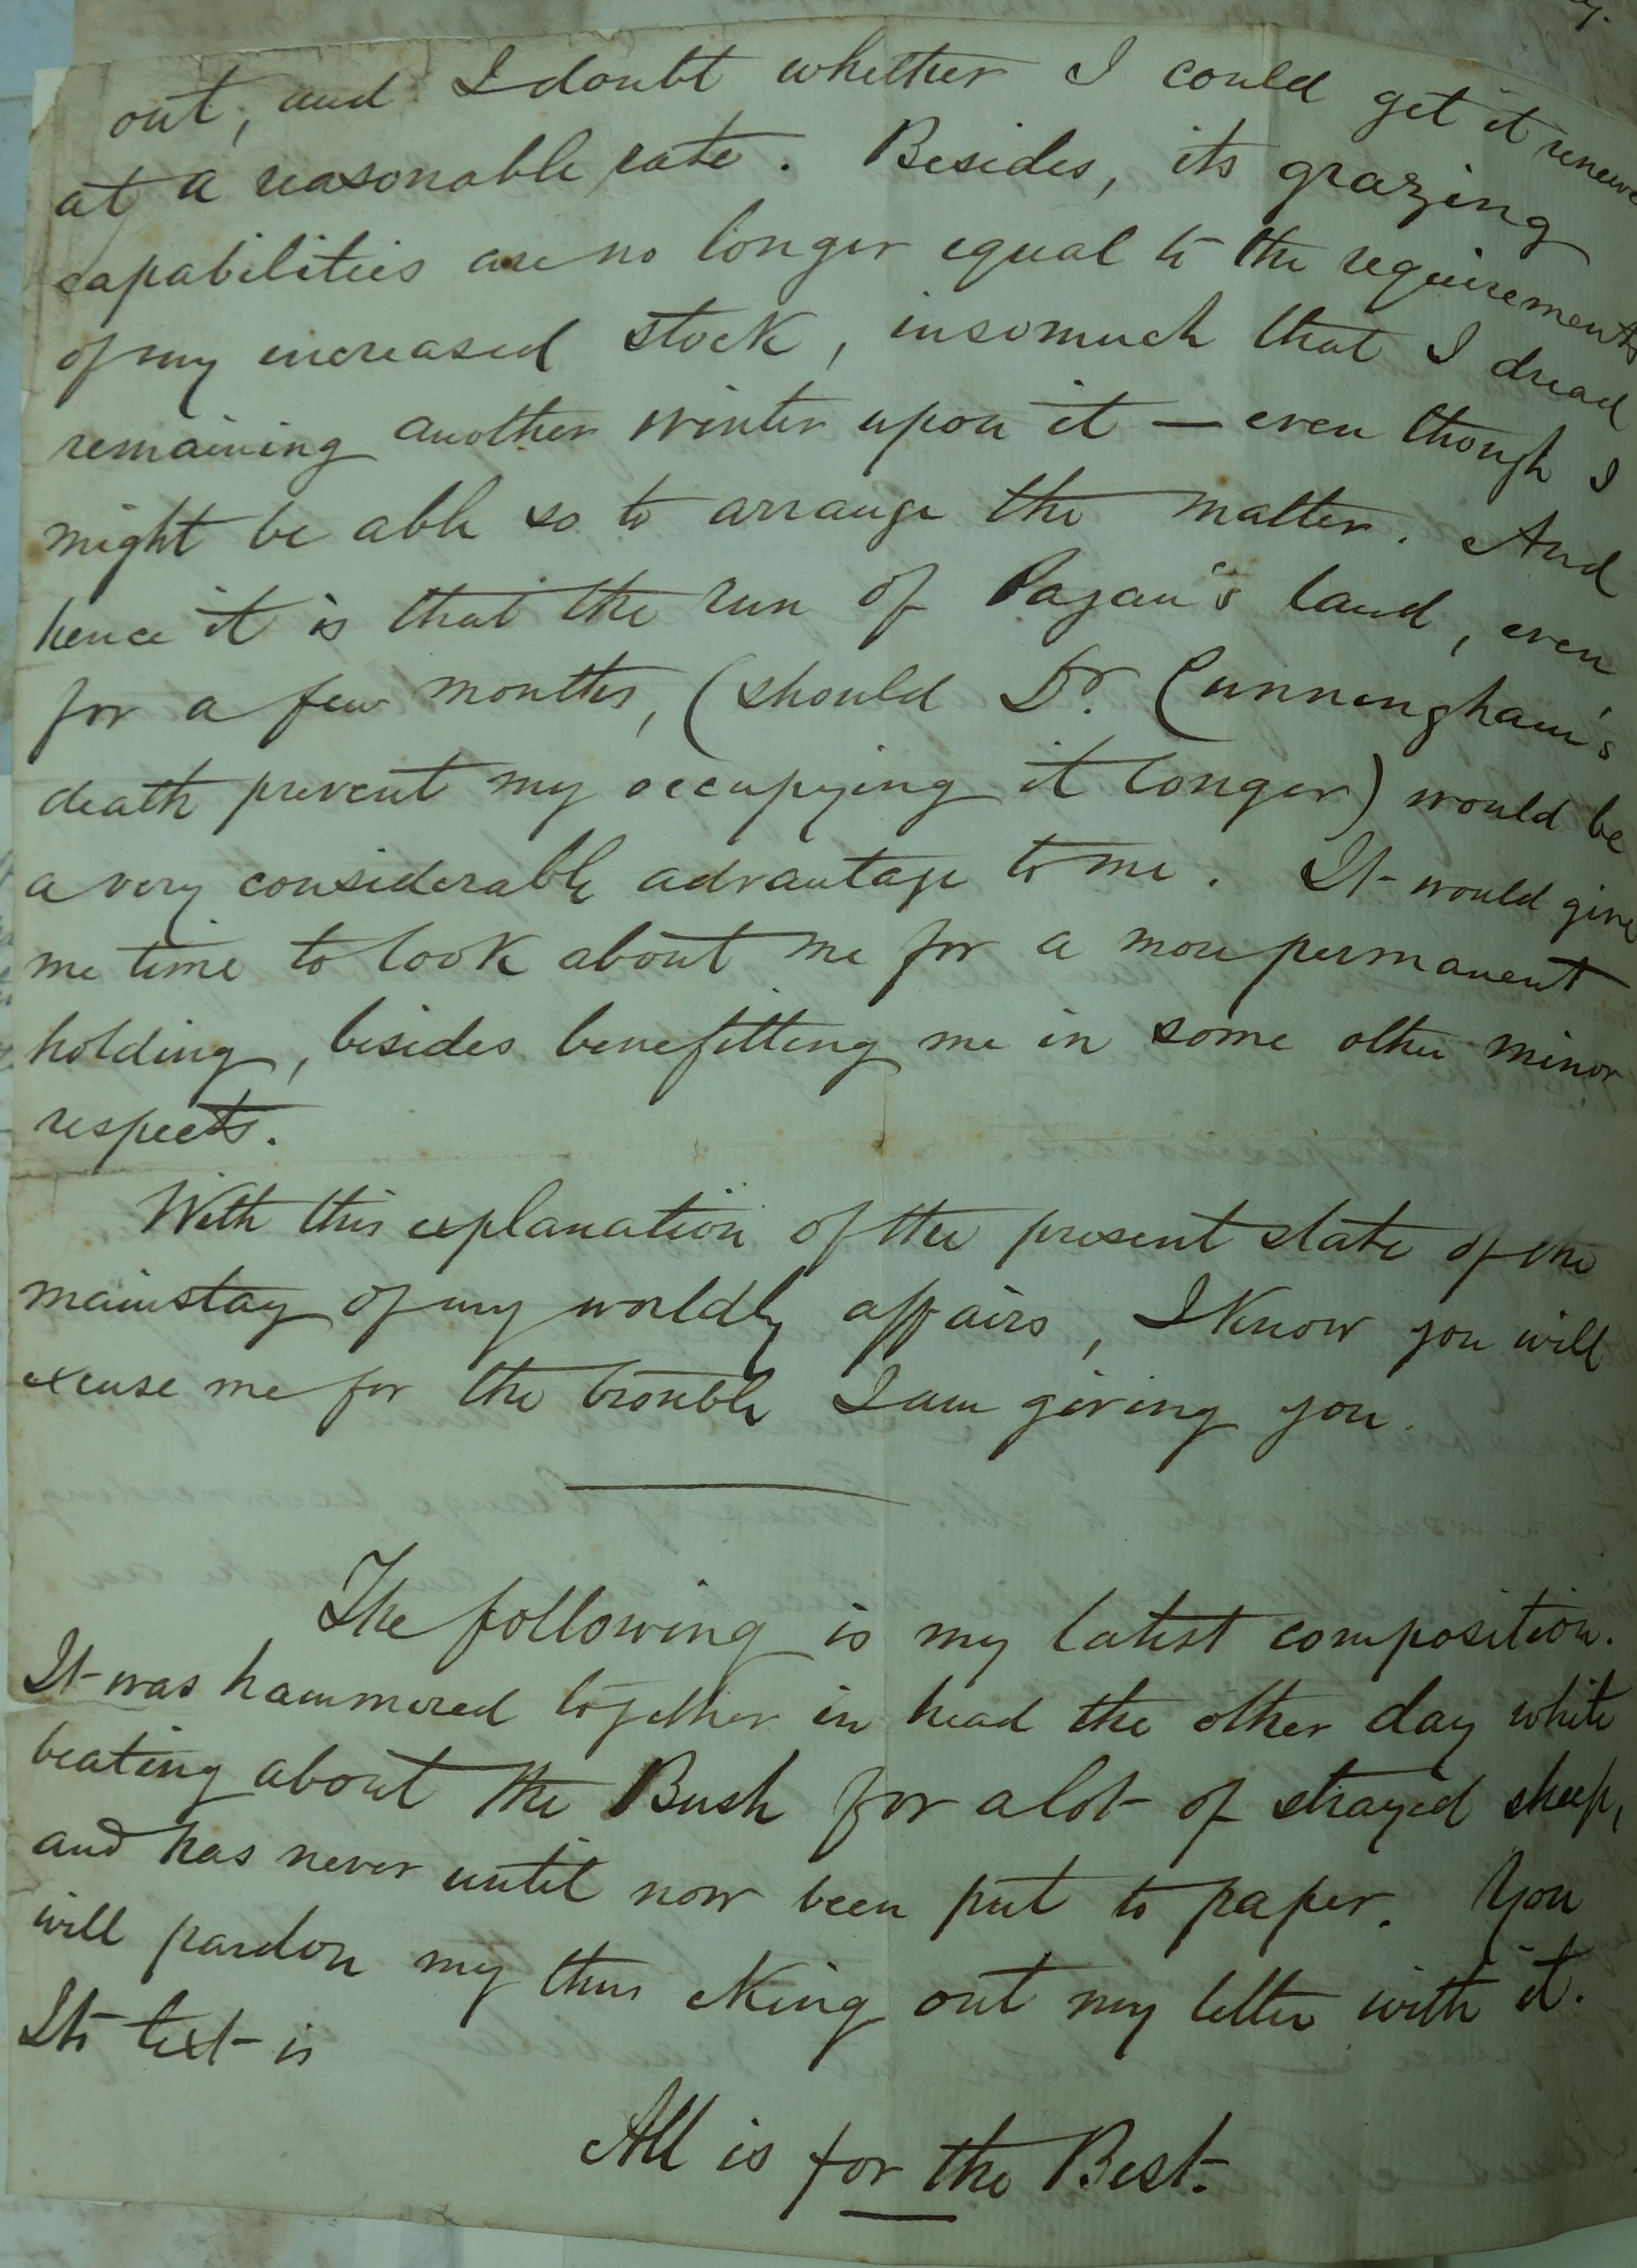 out, and I doubt whether I could get it renewe
at a reasonable rate. Besides, its grazing
capabilities are no longer equal to the requirements
of my increased stock, insomuch that I dread
remaining another winter upon it — even though I
might be able so to arrange the matter. And
hence it is that the run of Pagan's land, even
for a few months, (should Dr. Cunningham's
death prevent my occupying it longer) would be
a very considerable advantage to me. It would give
me time to look about me for a more permanent
holding, besides benefitting me in some other minor
respects.
With this explanation of the present state of the
mainstay of my worldly affairs, I know you will
excuse me for the trouble I am giving you.
The following is my latest composition.
It was hammered together in head the other day while
beating about the Bush for a lot of strayed sheep,
and has never until now been put to paper. You
will pardon my thus eking out my letter with it.
Its text is
All is for the Best.